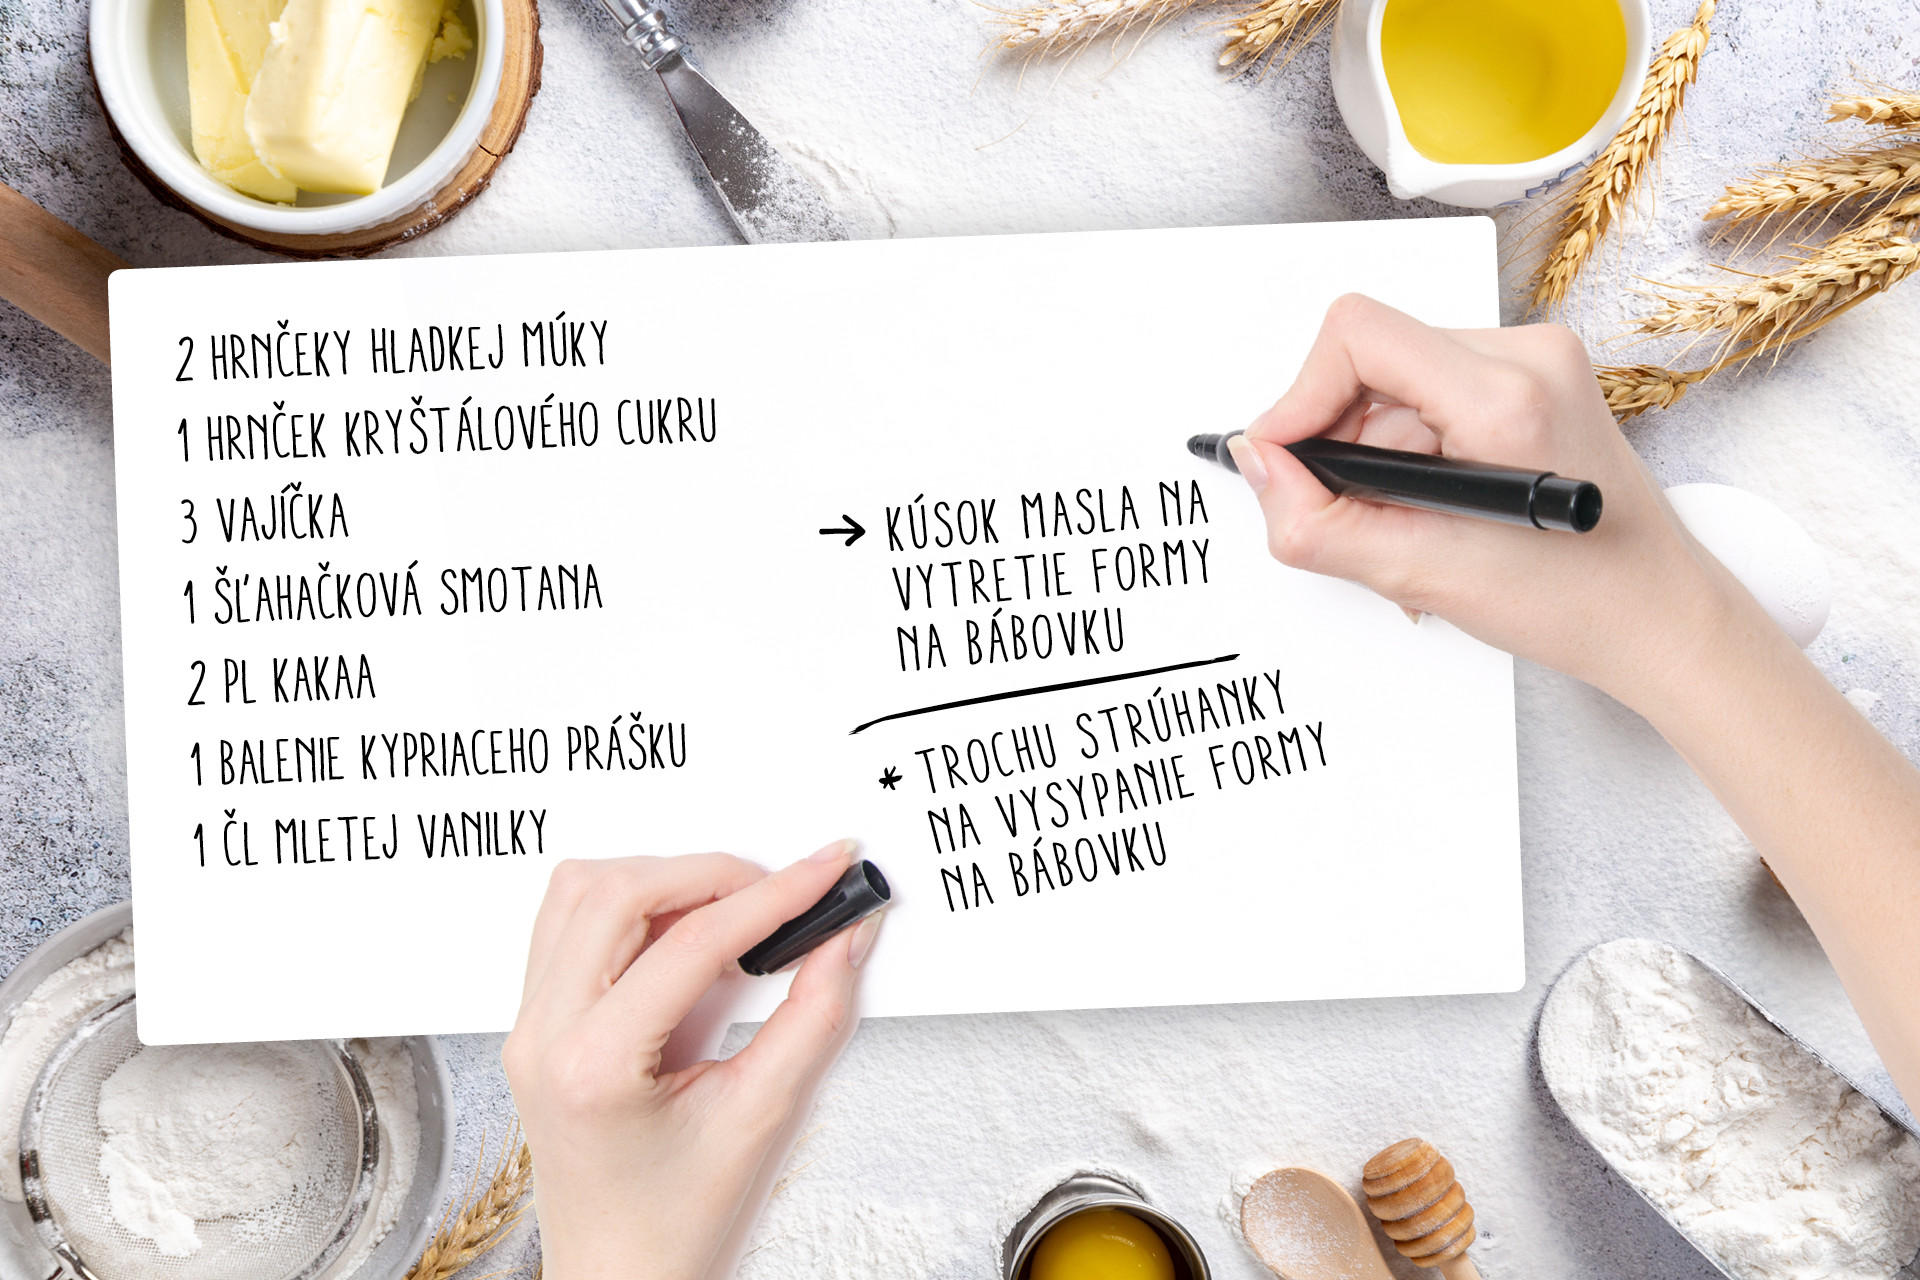 2 HRNČEKY HLADKEJ MÚKY
1 HRNČEK KRYŠTÁLOVÉHO CUKRU
3 VAJÍČKA
1 ŠĽAHAČKOVÁ SMOTANA
2 PL KAKAA
1 BALENIE KYPRIACEHO PRÁŠKU
1 ČL MLETEJ VANILKY
→ KÚSOK MASLA NA
VYTRETIE FORMY
NA BÁBOVKU
* TROCHU STRÚHANKY
NA VYSYPANIE FORMY
NA BÁBOVKU